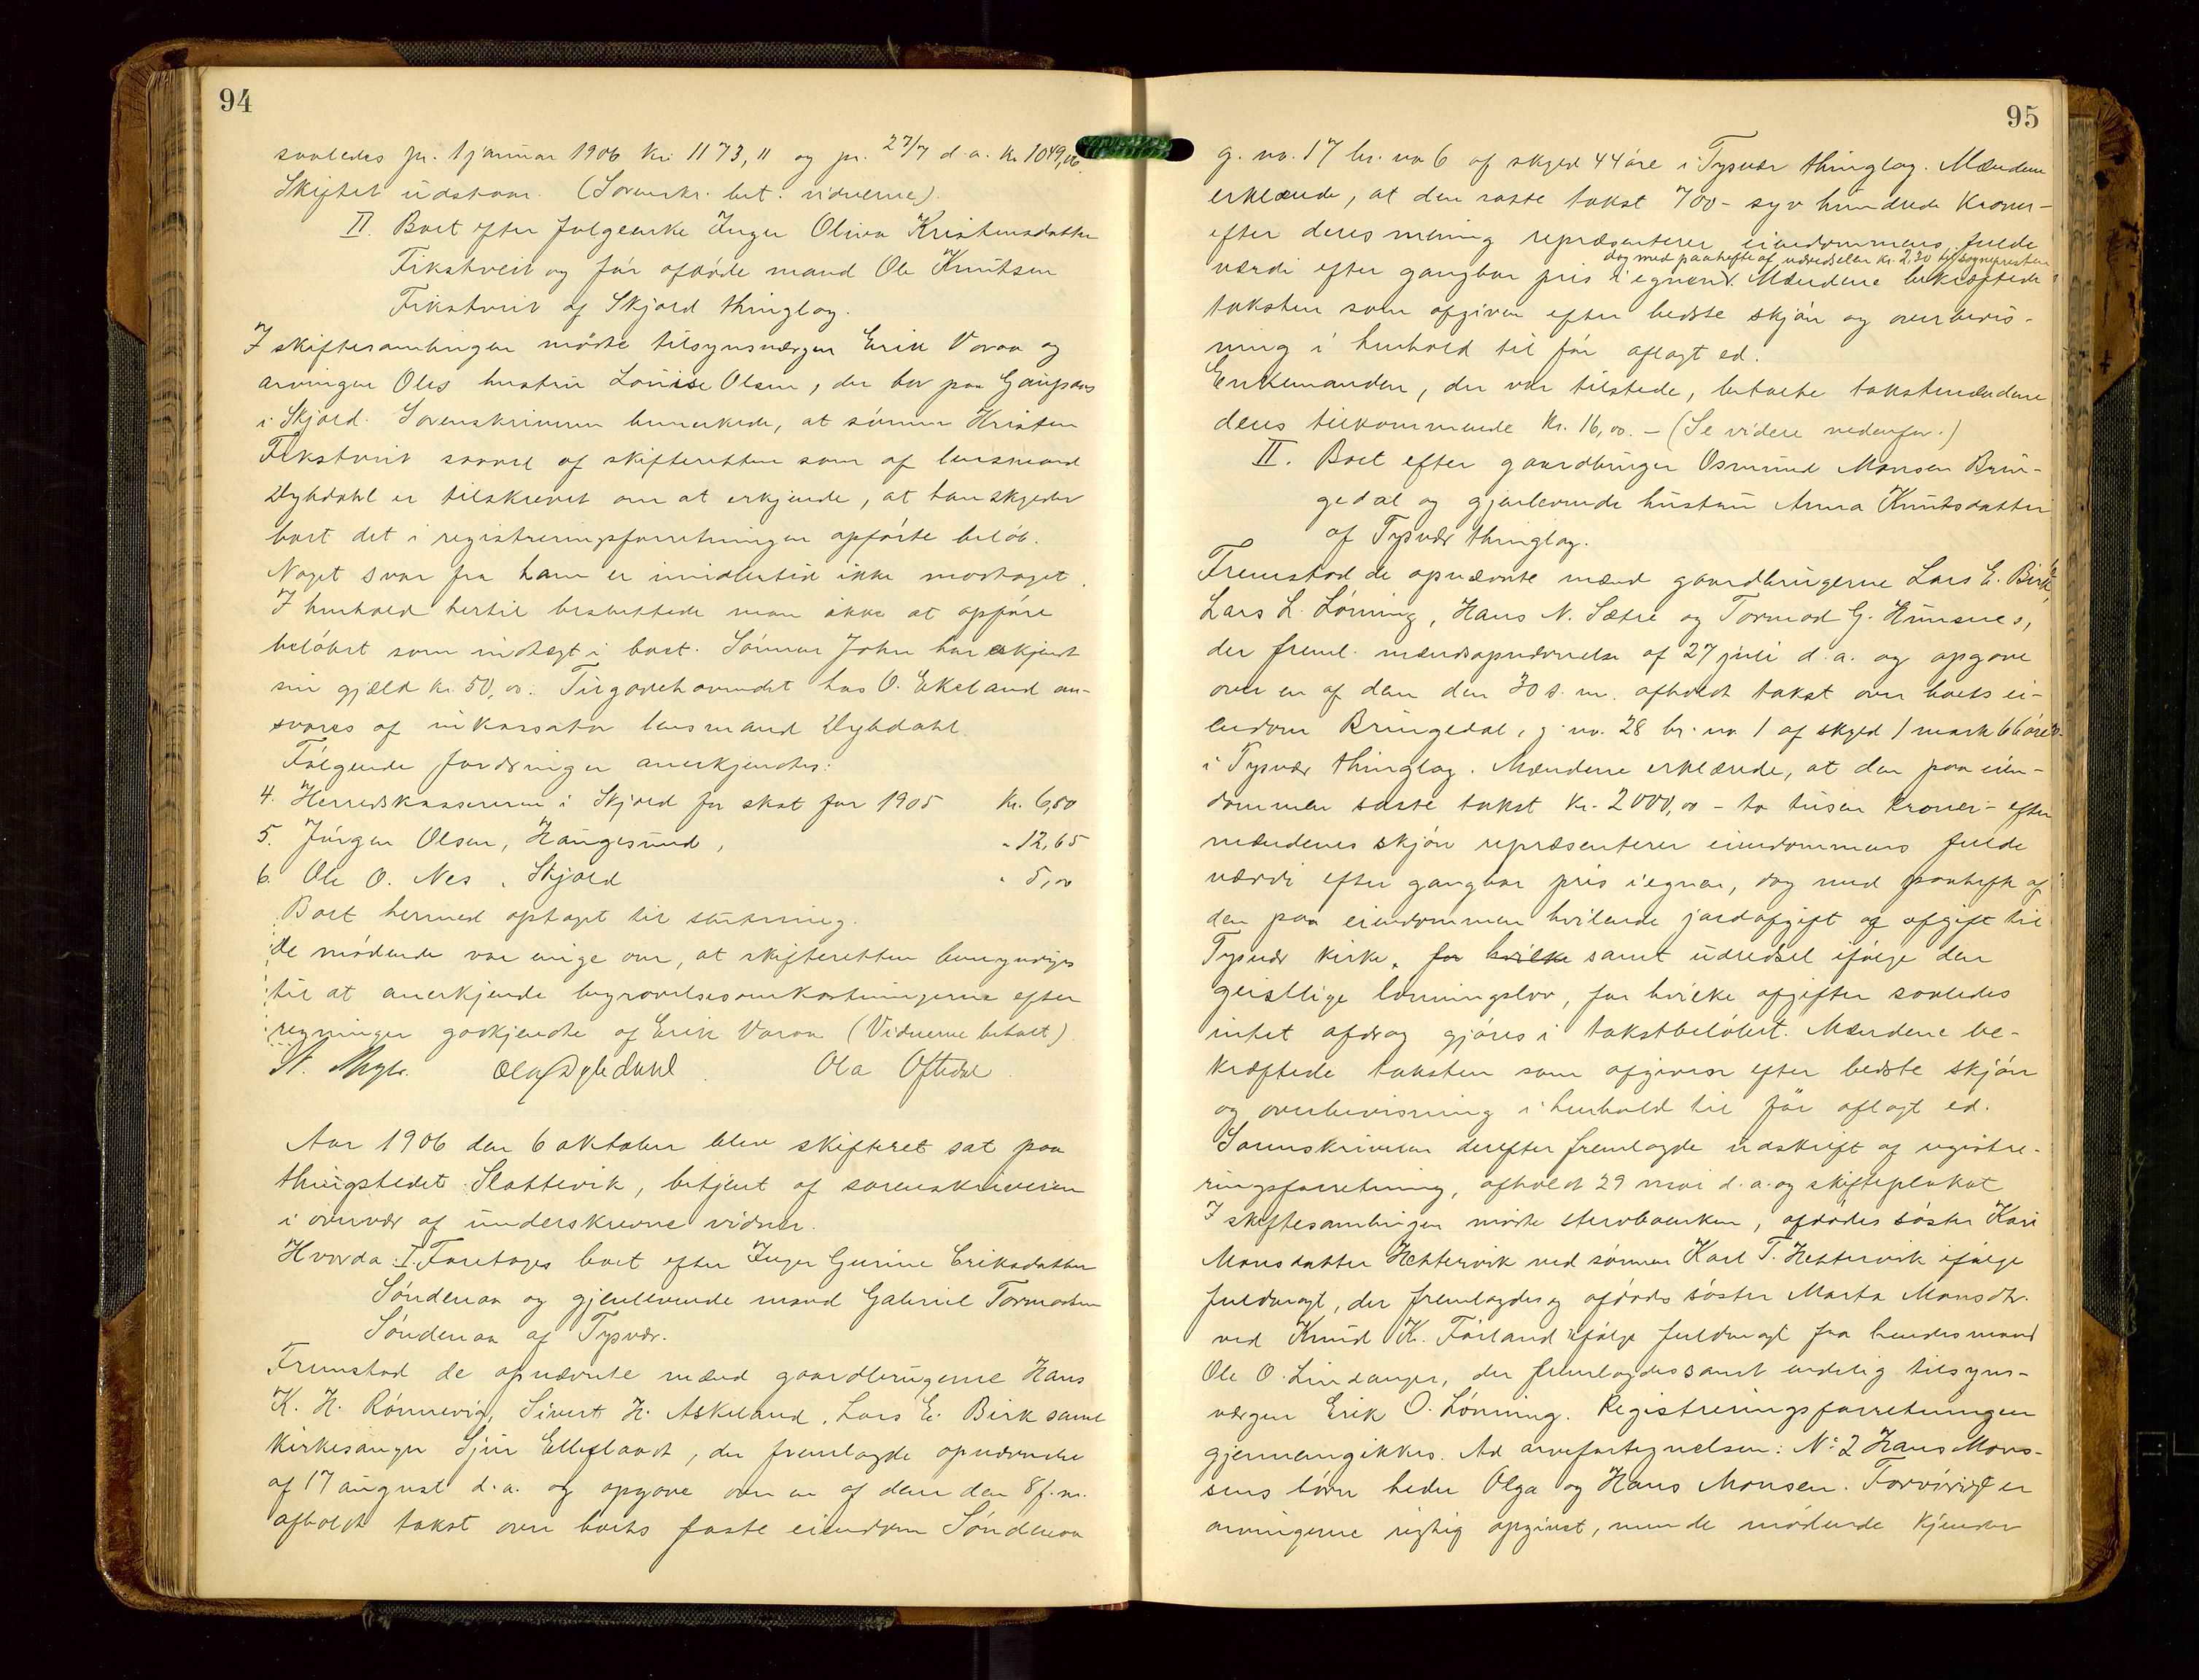 94
saaledes pr. 1 januar 1906 kr. 1173,11 og pr. 27/7 d.a. kr. 1049,06.
Skiftet udstaar. (Sorenskr. bet. vidnerne).
II. Boet efter folgeenke Inger Olivia Kristensdatter
Fikstveit og før afdøde mand Ole Knutsen
Fikstveit af Skjold thinglag.
I skiftesamlingen mødte tilsynsværgen Erik Varaa og
arvingen Oles hustru Louise Olsen, der bor paa Gaupaas
i Skjold. Sorenskriveren bemerkede, at sønnen Kristen
Fikstveit saavel af skifteretten som af lensmand
Dybdahl er tilskrevet om at erkjende, at han skylder
boet det i registreringsforretningen opførte beløb.
Noget svar fra ham er imidlertid ikke mottaget.
I henhold hertil besluttede man ikke at opføre
beløbet som indtægt i boet. Sønnen John har erkjendt
sin gjæld kr. 50,00. Tilgodehavendet hos O. Ekeland an-
svares af inkassator lensmand Dybdahl.
Følgende fordringer anerkjendtes:
4. Herredskassereren i Skjold for skat for 1905 kr. 6,50
5. Jørgen Olsen, Haugesund, " 12,65
6. Ole O. Nes, Skjold " 5,00
Boet hermed optaget til slutning.
De mødende var enige om, at skifteretten bemyndiges
til at anerkjende begravelsesomkostningerne efter
regninger godkjendte af Erik Varaa (Vidnerne betalt)
Olaf Dybdahl. Ola Oftedal.
Aar 1906 den 6 oktober blev skifteret sat paa
thingstedet Slattevik, betjent af sorenskriveren
i overvær af underskrevne vidner.
Hvorda: I. Foretoges boet efter Inger Gurine Eriksdatter
Søndenaa og gjenlevende mand Gabriel Tormodsen
Søndenaa af Tysvær.
Fremstod de opnævnte mænd gaardbrugerne Hans
K. H. Rønnevig, Sivert H. Askeland, Lars E. Birk samt
kirkesanger Sjur Ellefland, der fremlagde opnævnelse
af 17 august d.a. og opgave over en af dem den 8 f.m.
afholdt takst over boets faste eiendom Søndenaa
95
g. no. 17 br. no 6 af skyld 44 øre i Tysvær thinglag. Mændene
erklærede, at den satte takst 700 – syv hundrede kroner –
efter deres mening repræsenterer eiendommens fulde
dog med paahefte af udredselen kr. 2,30 til sognepresten
værdi efter gangbar pris i egnen. Mændene bekræftede
taksten som afgiven efter bedste skjøn og overbevis-
ning i henhold til før aflagt ed.
Enkemanden, der var tilstede, betalte takstmændene
deres tilkommende kr. 16,00. – (Se videre nedenfor.)
II. Boet efter gaardbruger Osmund Monsen Brin-
gedal og gjenlevende hustru Anna Knutsdatter
af Tysvær thinglag.
Fremstod de opnævnte mænd gaardbrugerne Lars E. Birk,
Lars L. Lønning, Hans N. Sætre og Tormod G. Hunsnes,
der freml. mændsopnævnelse af 27 juli d.a. og opgave
over en af dem den 30 s.m. afholdt takst over boets ei-
endom Bringedal, g. no. 28 br. no 1 af skyld 1 mark 66 øre
i Tysvær thinglag. Mændene erklærede, at den paa eien-
dommen satte takst kr. 2000,00 – to tusen kroner – efter
mændenes skjøn repræsenterer eiendommens fulde
værdi efter gangbar pris i egnen, dog med paahefte af
den paa eiendommen hvilende jordafgift og afgift til
Tysvær kirke, for hvilke samt udredsel ifølge den
geistlige lønningslov, for hvilke afgifter saaledes
intet afdrag gjøres i takstbeløbet. Mændene be-
kræftede taksten som afgiven efter bedste skjøn
og overbevisning i henhold til før aflagt ed.
Sorenskriveren derefter fremlagde udskrift af registre-
ringsforretning, afholdt 29 mai d.a. og skifteplakat
I skiftesamlingen mødte stervboenken, afdødes søster Kari
Monsdatter Hettervik ved sønnen Karl T. Hettervik ifølge
fuldmagt, der fremlagdes og afdødes søster Marta Monsdtr.
ved Knud K. Førland ifølge fuldmagt fra hendes mand
Ole O. Lindanger, der fremlagdes samt endelig tilsyns-
værgen Erik O. Lønning. Registreringsforretningen
gjennemgikkes. Ad arvefortegnelsen: No 2 Hans Mons-
sens børn heder Olga og Hans Monsen. Forøvrigt er
arvingerne rigtig opgivet, men de mødende kjender